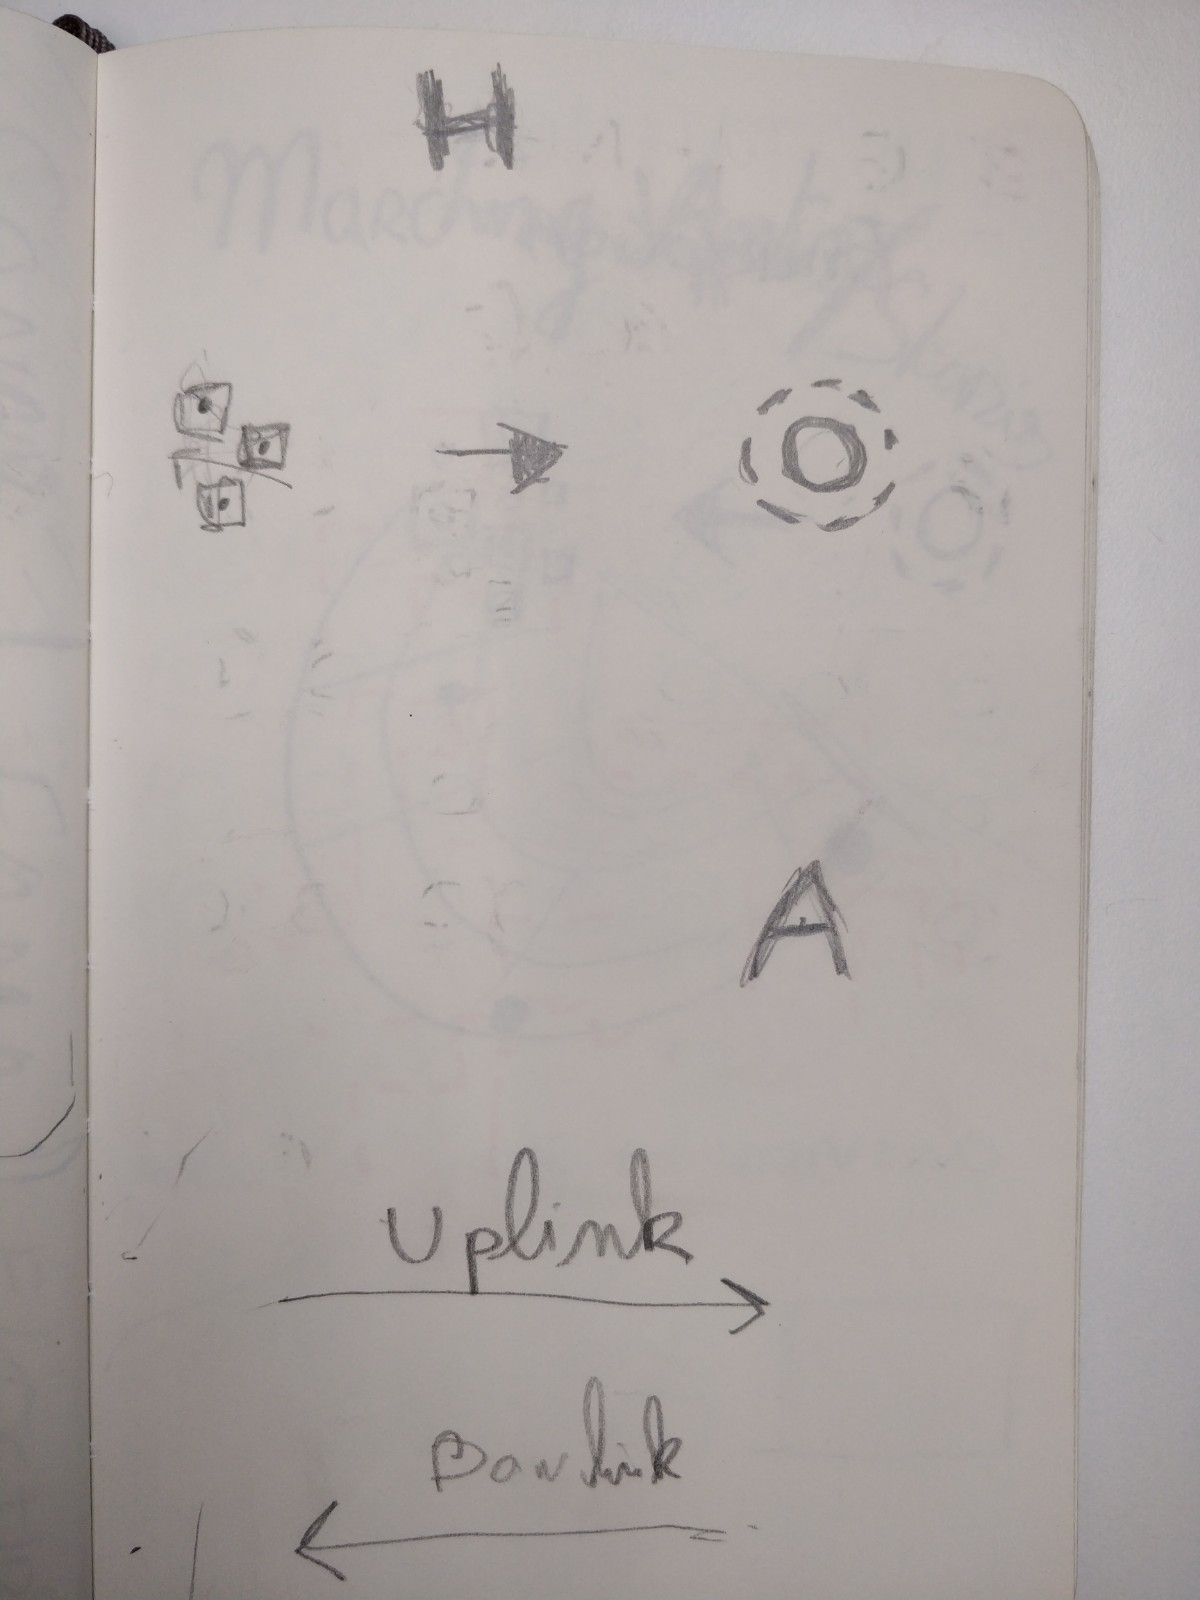 H
A
Uplink
Downlink